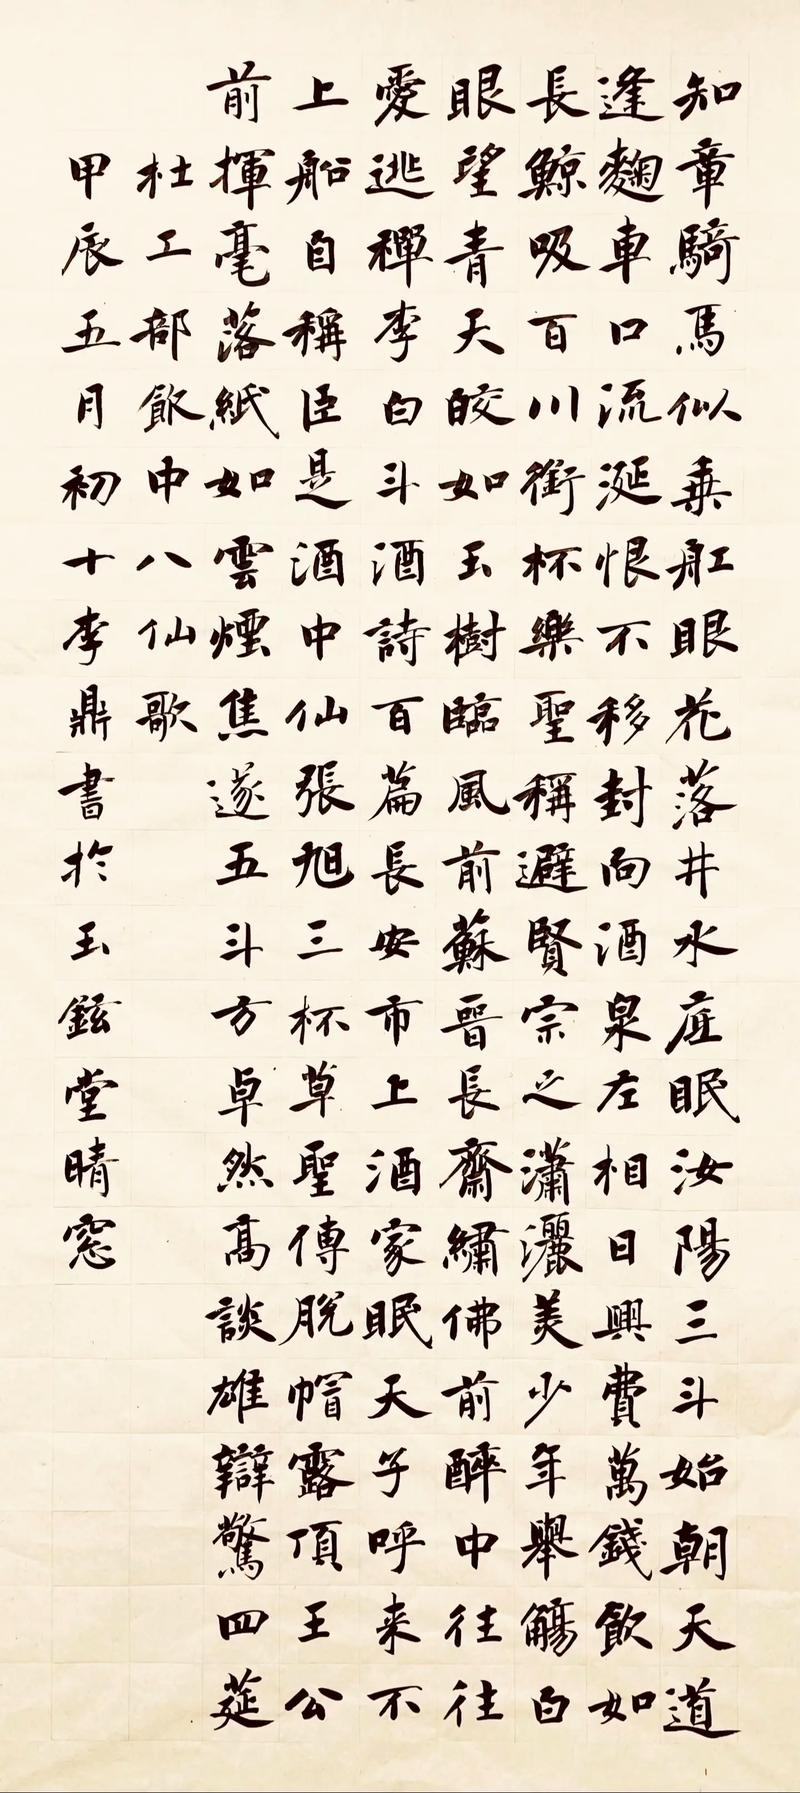 知章騎馬似乗舡眼花落井水底眠汝陽三斗始朝天道
逢麴車口流涎恨不移封向酒泉左相日興費萬錢飲如
長鯨吸百川銜杯樂聖稱避賢宗之瀟灑美少年舉觴白
眼望青天皎如玉樹臨風前蘇晉長齋繡佛前醉中往往
愛逃禪李白斗酒詩百篇長安市上酒家眠天子呼来不
上船自稱臣是酒中仙張旭三杯草聖傳脫帽露頂王公
前揮毫落紙如雲煙焦遂五斗方卓然高談雄辯驚四莚
杜工部飲中八仙歌
甲辰五月初十李鼎書於玉鉉堂晴窓